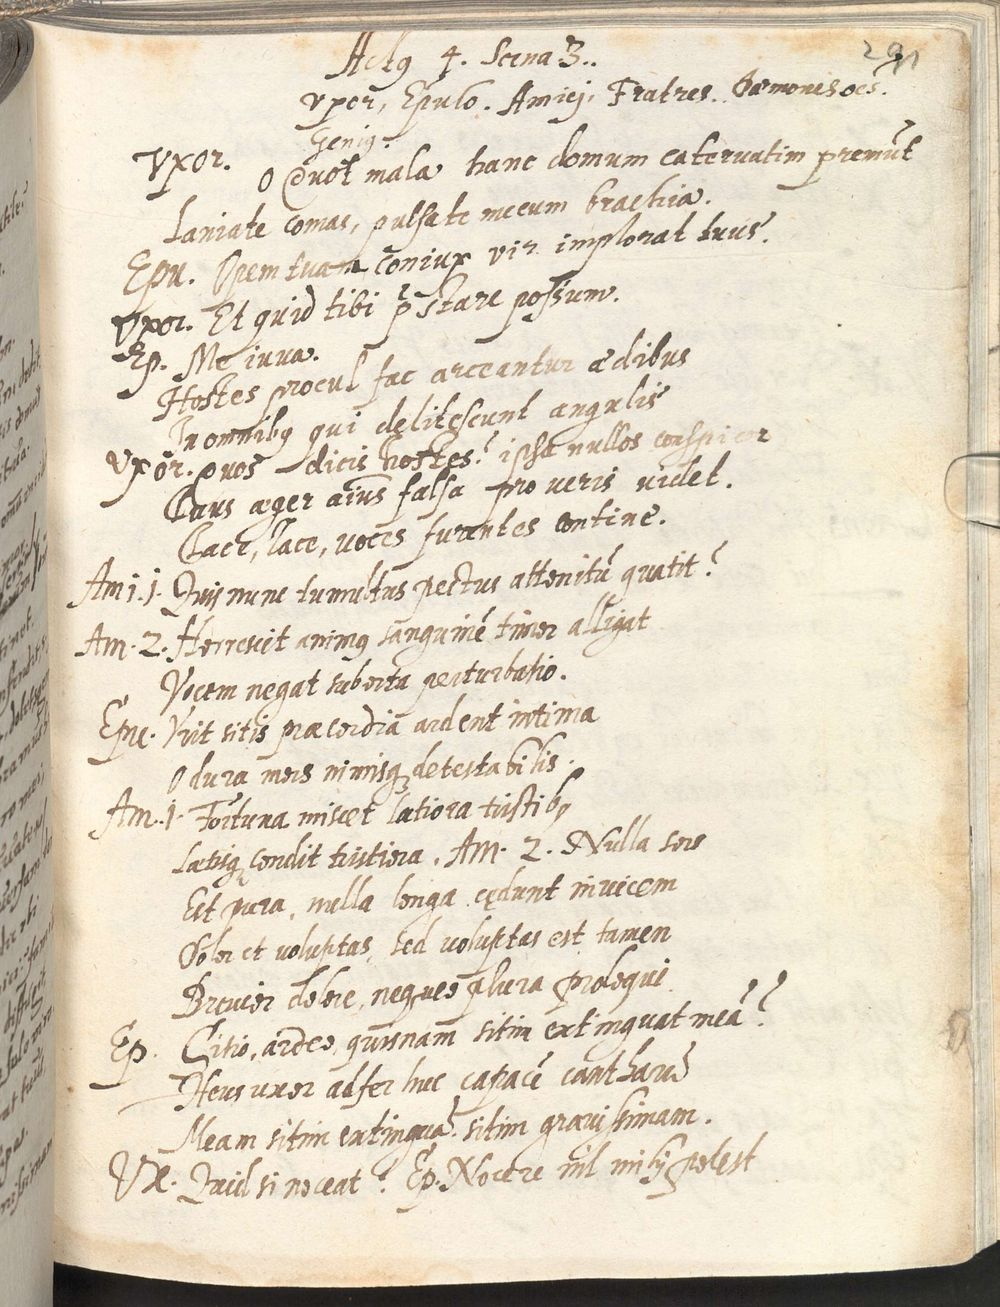 291
Actꝯ 4. Scena 3..
Vxor, Epulo. Amici, Fratres. Dæmones oēs.
Geniꝯ.
Vxor. O Quot mala hanc domum cateruatim premūt
Laniate comas, pulsate mecum brachia.
Epu. Opem tuam coniux vir implorat tuus.
Vxor. Et quid tibi p̄stare possum.
Ep. Me iuua.
Hostes procul fac arceantur ædibus
In omnibꝯ qui delitescunt angulis
Vxor. Quos dicis hostes? ipsa nullos conspicor
æger aīus falsa pro veris uidet.
Tace, tace, uoces furentes contine.
Am. 1. Quis nunc tumultus pectus attonitū quatit?
Am. 2. Horrescit animꝯ sanguinē timor alligat
Vocem negat suborta perturbatio.
Epu. Vrit sitis præcordia ardent intima
O dura mors nimisqꝫ detestabilis.
Am. 1. Fortuna miscet lætiora tristibꝯ
Lætisqꝫ condit tristiora. Am. 2. Nulla sors
Est pura, nulla longa cędunt inuicem
Dolor et uoluptas, sed uoluptas est tamen
Breuior dolore, neqꝫ plura prosequi
Ep. Sitio, ardeo, quisnam sitim extinguat meā?
Heus uxor adfer huc capacē cantharū
Meam sitim extinguā sitim grauissimam.
Vx. Quid si noceat? Ep. Nocere nil mihi potest